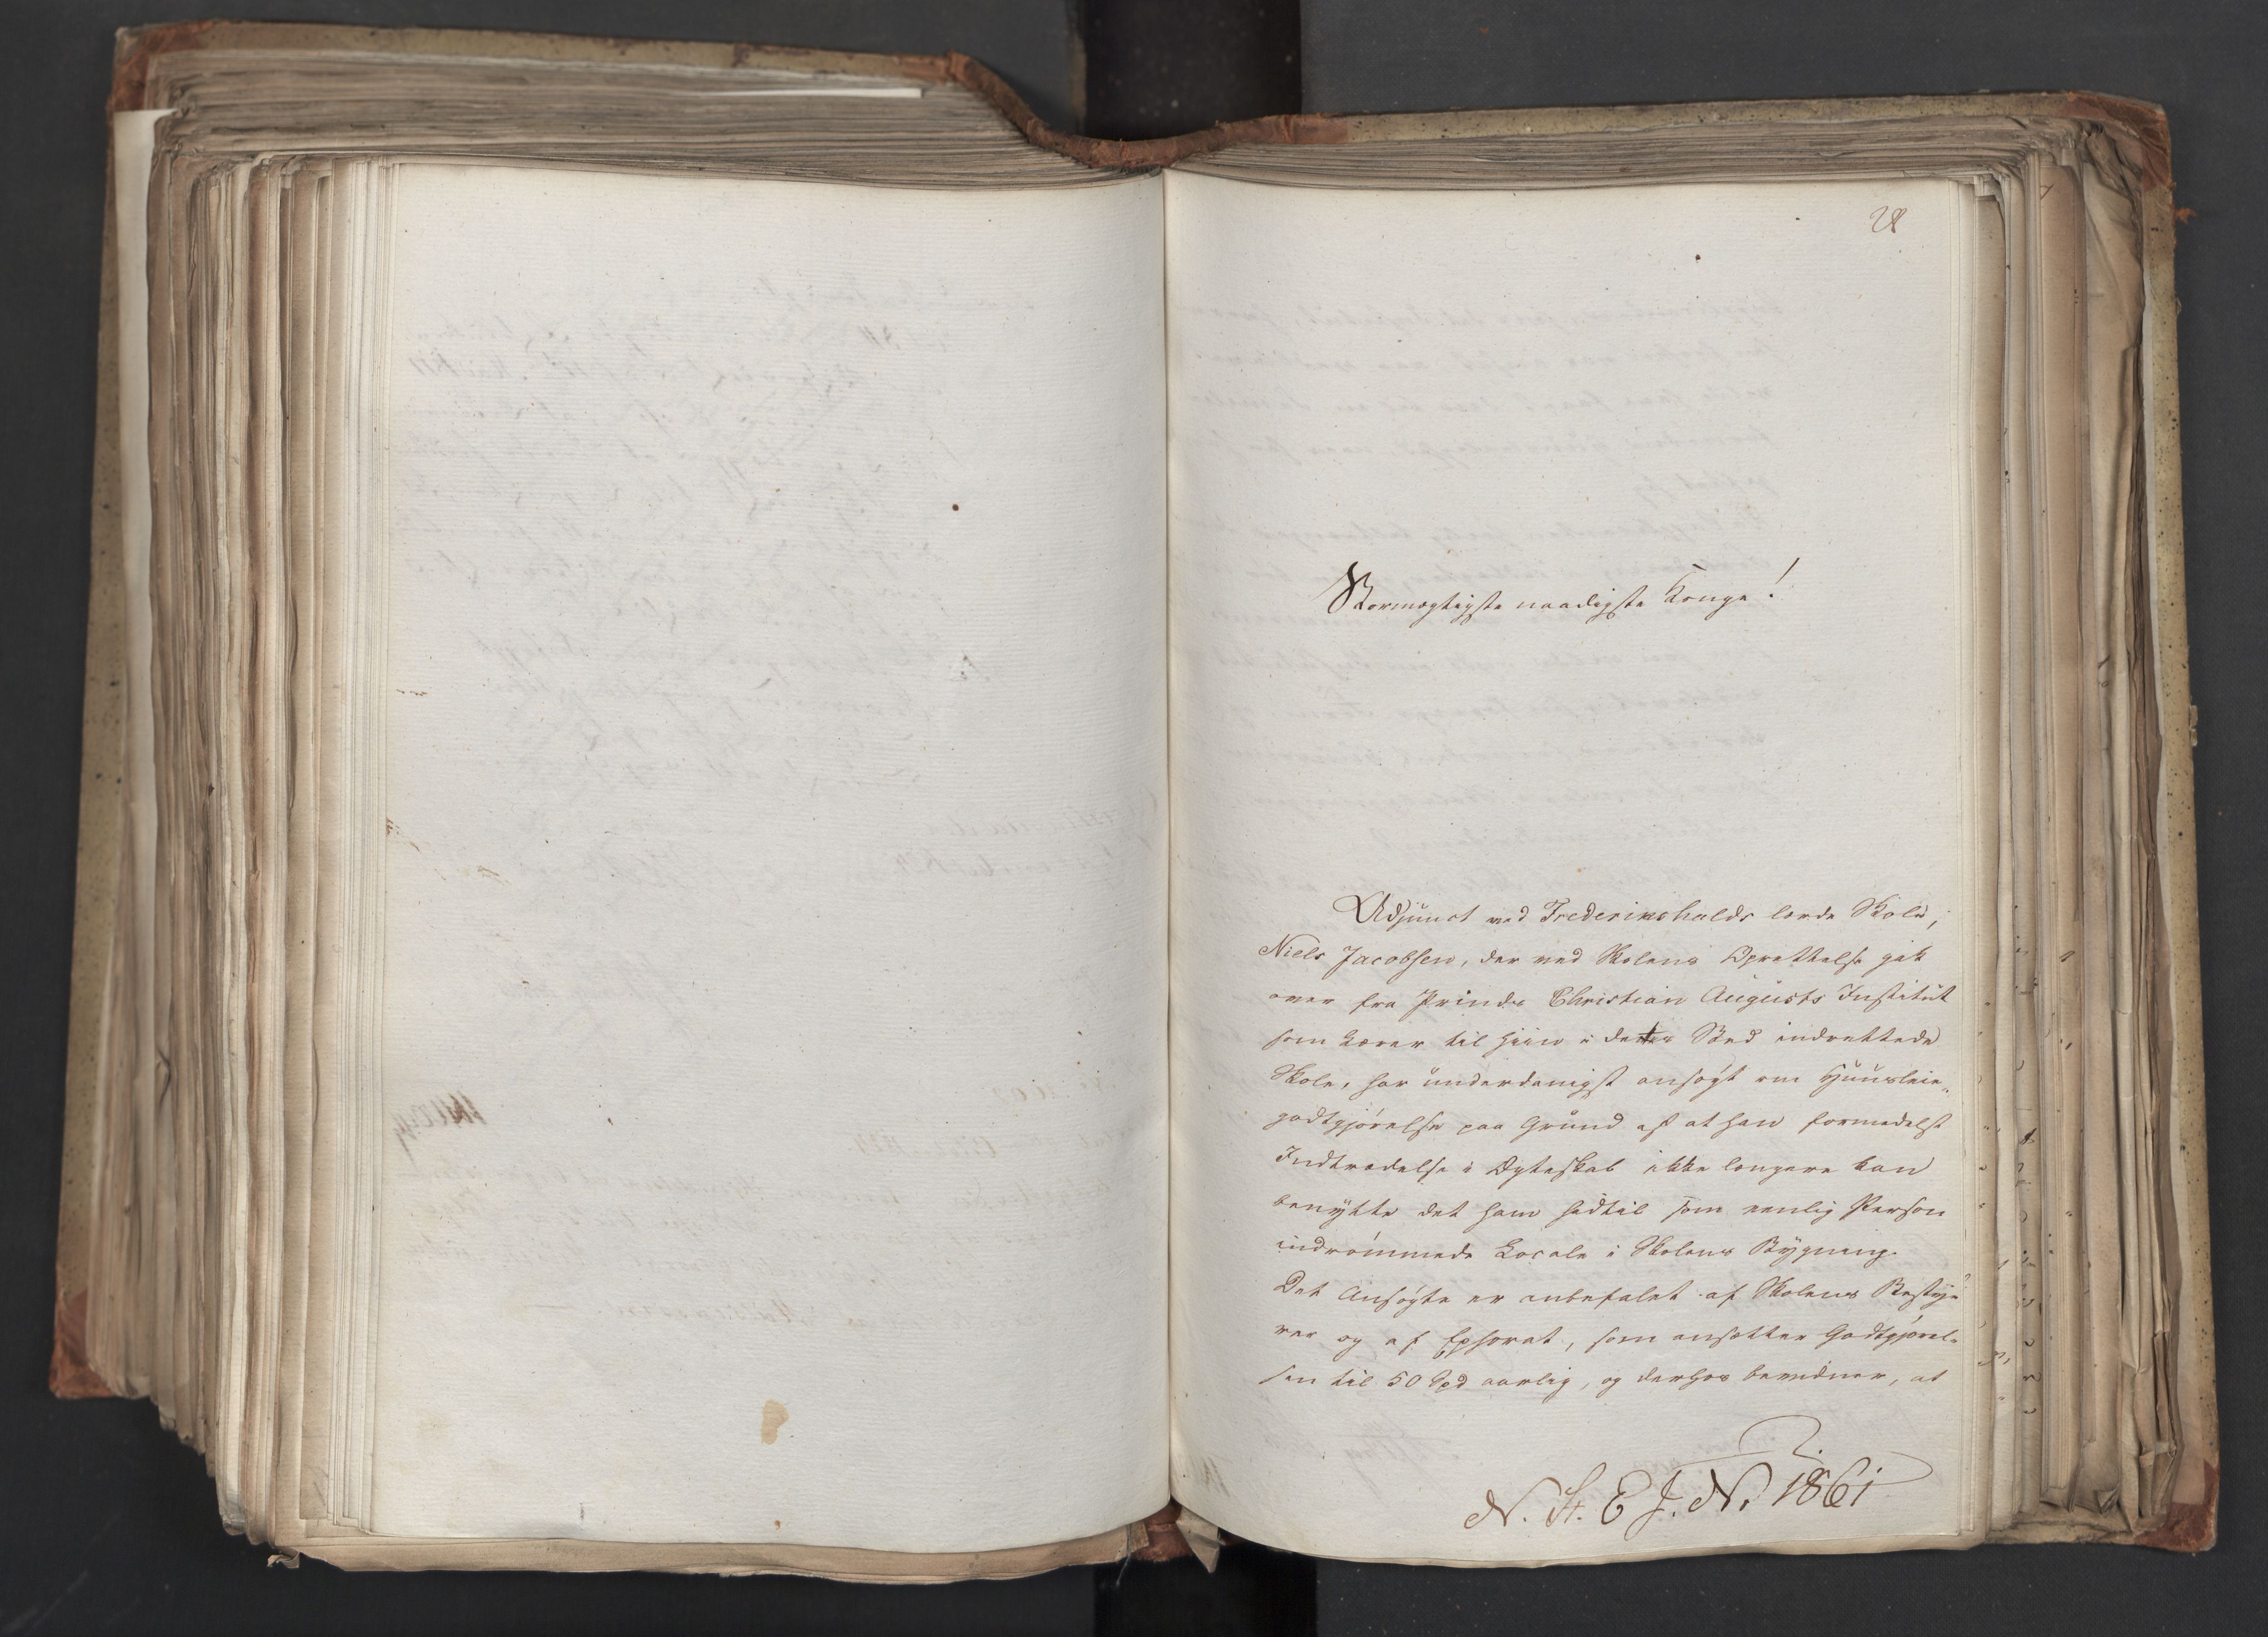 28
Stormægtigste naadigste Konge!
Adjunct ved Frederikshalds lærde Skole,
Niels Jacobsen, der ved Skolens Oprettelse gik
over fra Prinds Christian Augusts Institut
som Lærer til hiin i dettes Sted indrettede
Skole, har underdanigst ansøgt om Huusleie„
godtgjørelse paa Grund af at han formedelst
Indtrædelse i Ægteskab ikke længere kan
benytte det ham hidtil som eenlig Person
indrømmede Locale i Skolens Bygning.
Det Ansøgte er anbefalet af Skolens Besty„
rer og af Ephorat, som ansætter Godtgjørel„
sen til 50 Spd aarlig, og derhos bevidner, at
N. St. E J. No 1861